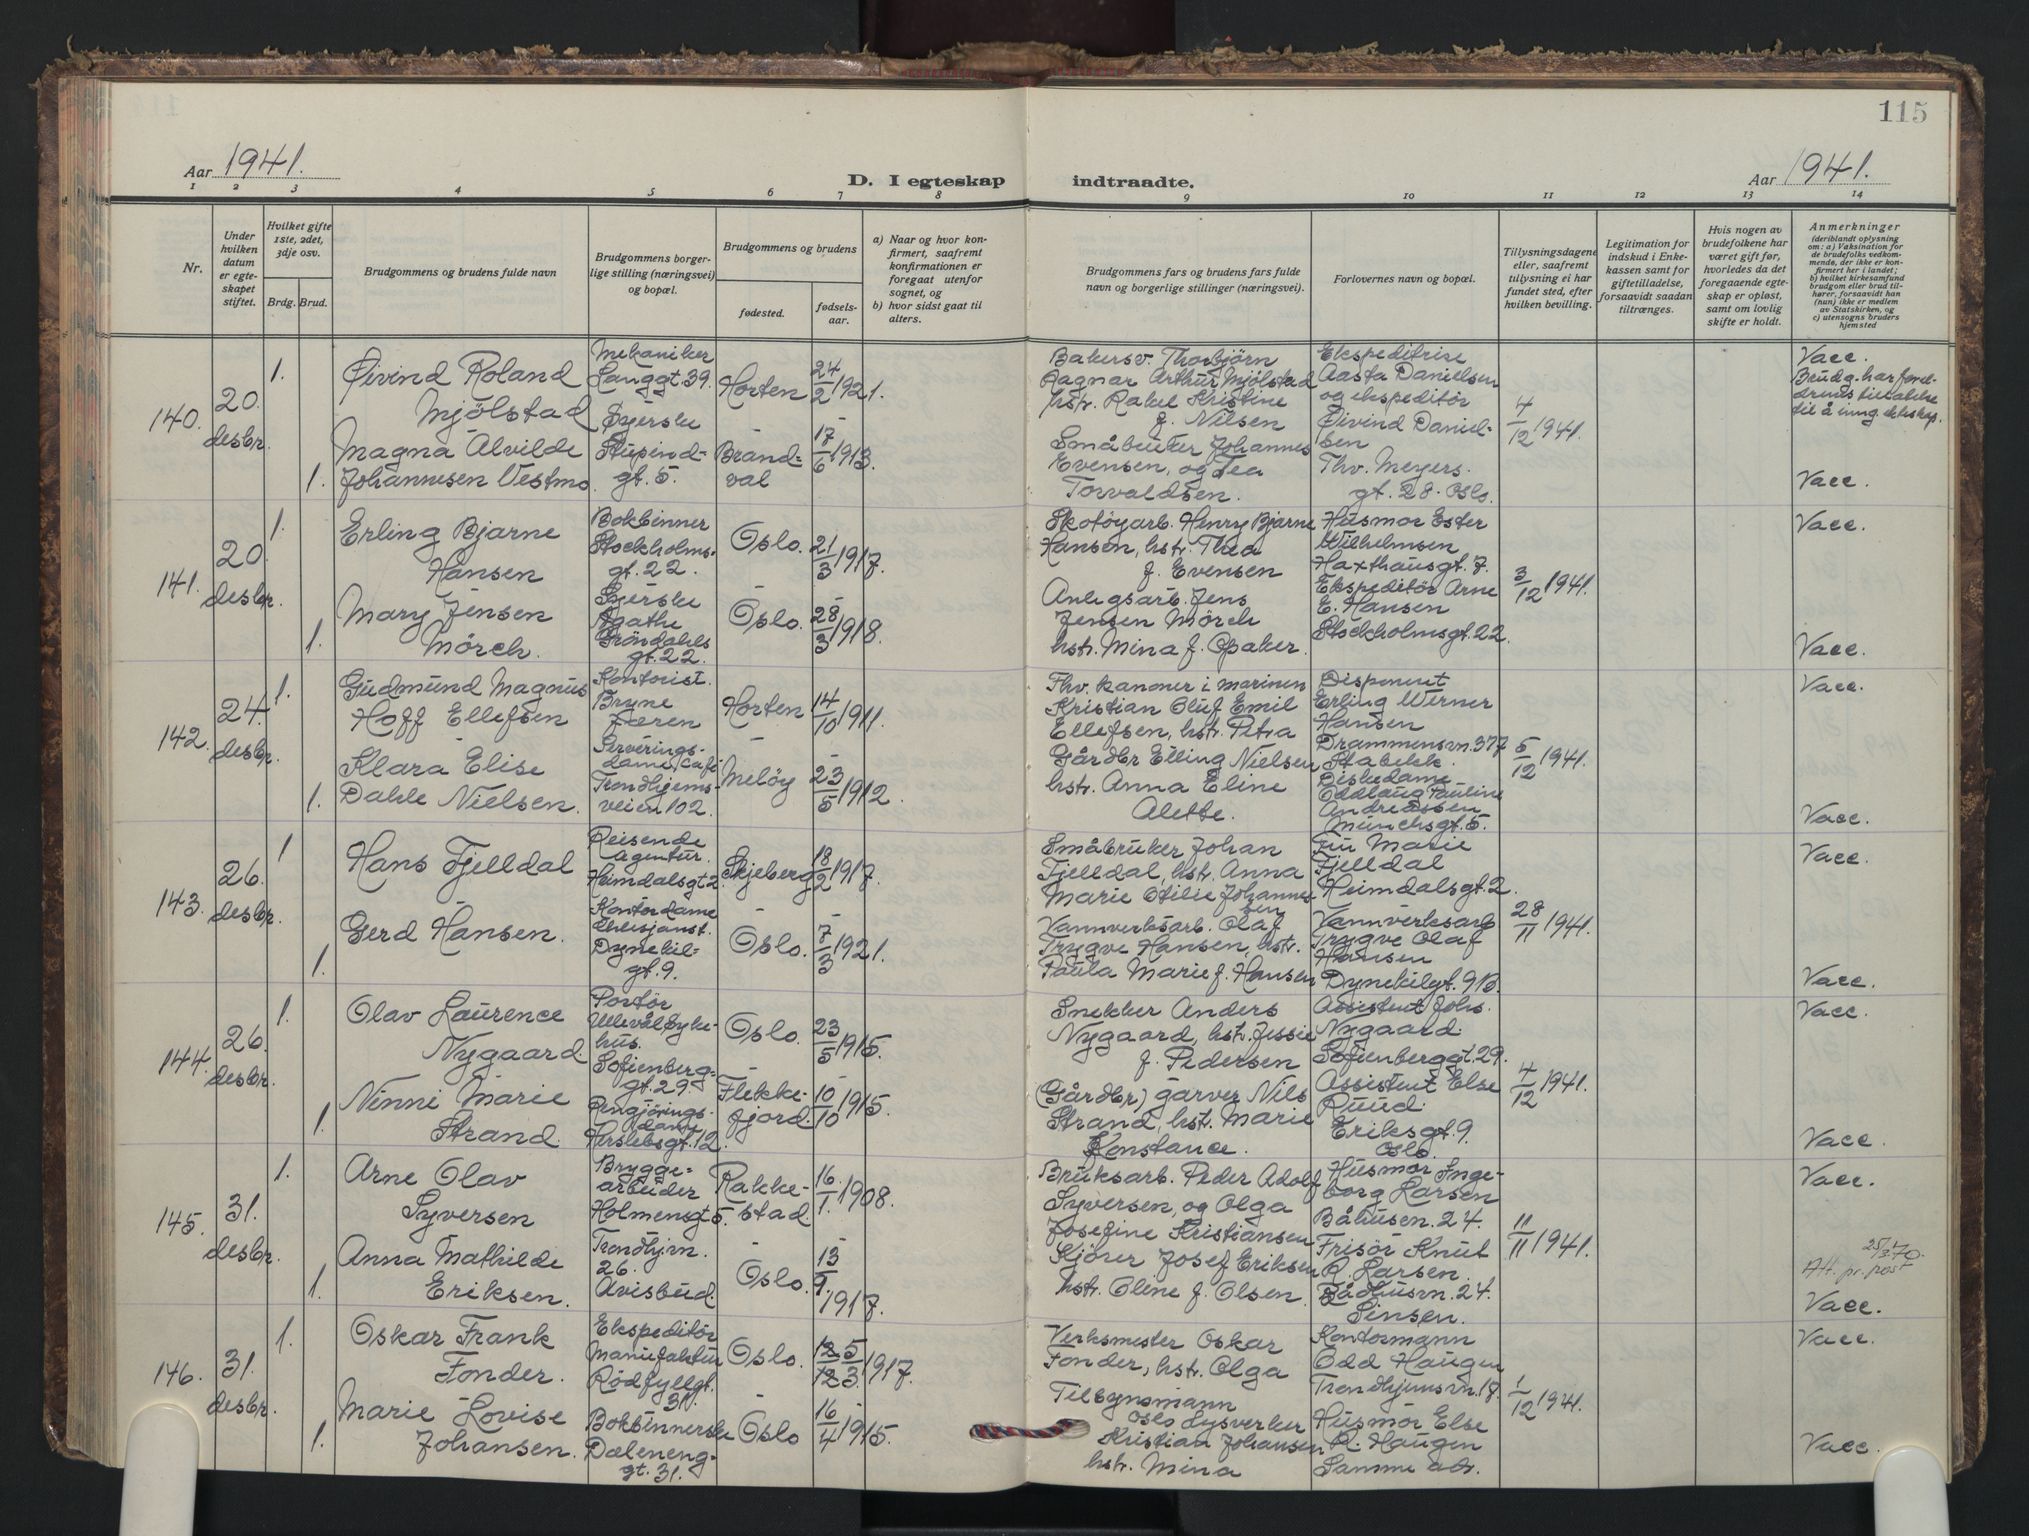 115
Aar 1941.
D. I egteskap indtraadte.
Aar 1941.
1 2 3 4 5 6 7 8 9 10 11 12 13 14
Nr.
Under hvilken datum er egteskapet stiftet.
Hvilket gifte 1ste, 2det, 3dje osv.
Brdg. Brud.
Brudgommens og brudens fulde navn
Brudgommens borgerlige stilling (næringsvei) og bopæl.
Brudgommens og brudens
fødested.
fødselsaar.
a) Naar og hvor konfirmert, saafremt konfirmationen er foregaat utenfor sognet, og
b) hvor sidst gaat til alters.
Brudgommens fars og brudens fars fulde navn og borgerlige stillinger (næringsvei).
Forlovernes navn og bopæl.
Tillysningsdagene eller, saafremt tillysning ei har fundet sted, efter hvilken bevilling.
Legitimation for indskud i Enkekassen samt for giftetilladelse, forsaavidt saadan tiltrænges.
Hvis nogen av brudefolkene har været gift før, hvorledes da det foregaaende egteskap er opløst, samt om lovlig skifte er holdt.
Anmerkninger
(deriblandt oplysning om: a) Vaksination for de brudefolks vedkommende, der ikke er konfirmert her i landet;
b) hvilket kirkesamfund brudgom eller brud tilhører, forsaavidt han (hun) ikke er medlem av Statskirken, og
c) utensogns bruders hjemsted
140.
20.
desbr.
1.
Øivind Roland
Mjølstad
Mekaniker
Langgt. 39.
Horten
24/2 1921.
1.
Magna Alvilde
Johannesen Vestmo
Syerske
Stupend-
gt. 5.
Brand-
val
17/6 1913.
Bakersv. Thorbjörn
Ragnar Arthur Mjølstad
hstr. Rakel Kristine
f. Nilsen
Småbruker Johannes
Evensen, og Tea
Torvaldsen.
Ekspeditrise
Aasta Danielsen
og ekspeditör
Øivind Daniel-
sen
Thv. Meyers.
gt. 28. Oslo.
4/12 1941.
Vacc.
Brudg. har forel-
drenes tillatelse
til å inng. ekteskap.
Vacc.
141.
20
desbr.
1.
Erling Bjarne
Hansen
Bokbinner
Stockholms-
gt. 22.
Oslo.
21/3 1917.
1.
Mary Jensen
Mörch.
Syerske
Agathe
Gröndahls
gt. 22.
Oslo.
28/3 1918.
Skotöyarb. Henry Bjarne
Hansen, hstr. Thea
f. Evensen
Anlegsarb. Jens
Jensen Mörch
hstr. Mina f. Opaker.
Husmor Ester
Wilhelmsen
Haxthausgt. 7.
Ekspeditör Arne
E. Hansen
Stockholmsgt. 22.
3/12 1941.
Vacc.
Vacc.
142.
24.
desbr.
1.
Gudmund Magnus
Hoff Ellefsen
Kontorist.
Bryne
Jæren
Horten
14/10 1911.
1.
Klara Elise
Dahle Nielsen.
Serverings-
dame, Café
Trondhjems-
veien 102.
Meløy
23/5 1912.
Thv. kanoner i marinen
Kristian Oluf Emil
Ellefsen, hstr. Petra
Gårdbr Elling Nielsen
hstr. Anna Eline
Alette.
Disponent
Erling Werner
Hansen
Drammensvn. 377
Stabekk.
Diskedame
Oddlaug Pauline
Andreassen
Munchsgt. 5.
5/12 1941.
Vacc.
Vacc.
143.
26.
desbr.
1
Hans Fjelldal
Reisende
Agentur.
Heimdalsgt 2.
Skjeberg
18/2 1917.
1.
Gerd Hansen.
Kontordame
Dynekil-
gt. 9.
Oslo.
7/3 1921.
Småbruker Johan
Fjelldal, hstr. Anna
Marie Otilie Johannes-
sen
Vannverksarb. Olaf
Trygve Hansen, hstr.
Paula Marie f. Hansen
Fru Marie
Fjelldal
Heimdalsgt. 2.
Vannverksarb
Trygve Olaf
Hansen
Dynekilgt. 9B.
28/11 1941.
Vacc.
Vacc.
144.
26.
desbr.
1.
Olav Laurence
Nygaard.
Portör
Ullevål syke-
hus.
Sofienberg-
gt. 29.
Oslo.
23/5 1915.
1.
Ninni Marie
Strand.
Rengjörings-
dame
Herslebsgt. 12.
Flekke-
fjord.
10/10 1915.
Snekker Anders
Nygaard, hstr. Jessie
f. Pedersen
(Gårdbr) garver Nils
Strand, hstr. Marie
Konstance.
Assistent Johs.
Nygaard.
Sofienberggt. 29.
Assistent Else
Ruud.
Eriksgt. 9.
Oslo.
4/12 1941.
Vacc.
Vacc.
145.
31.
desbr.
1.
Arne Olav
Syversen
Brygge-
arbeider
Holmensgt 5.
Rakke-
stad
16/1 1908.
1.
Anna Mathilde
Eriksen.
Trondhjvn.
26.
Avisbud.
Oslo.
13/9 1917.
Bruksarb. Peder Adolf
Syversen, og Olga
Josefine Kristiansen
Kjörer Josef Eriksen
hstr. Oline f. Olsen.
Husmor Inge-
borg Larsen
Båhusvn. 24.
Frisör Knut
R. Larsen.
Bådhusvn. 24.
Sinsen.
11/11 1941.
Vacc.
25/3.70.
Att. pr. post
Vacc.
146.
31.
desbr.
1.
Oskar Frank
Fonder.
Ekspeditör
Manufaktur
Rødfyllgt.
31.
Oslo.
12/12 5/3 1917.
1.
Marie Lovise
Johansen.
Bokbinnerske
Dæleneng-
gt. 31.
Oslo
16/4 1915.
Verksmester Oskar
Fonder, hstr. Olga
Tilsynsmann
Oslo Lysverker
Kristian Johansen
hstr. Mina
Kontormann
Odd Haugen
Trondhjemsvn. 18.
Husmor Else
R. Haugen
Samme adr.
1/12 1941.
Vacc.
Vacc.